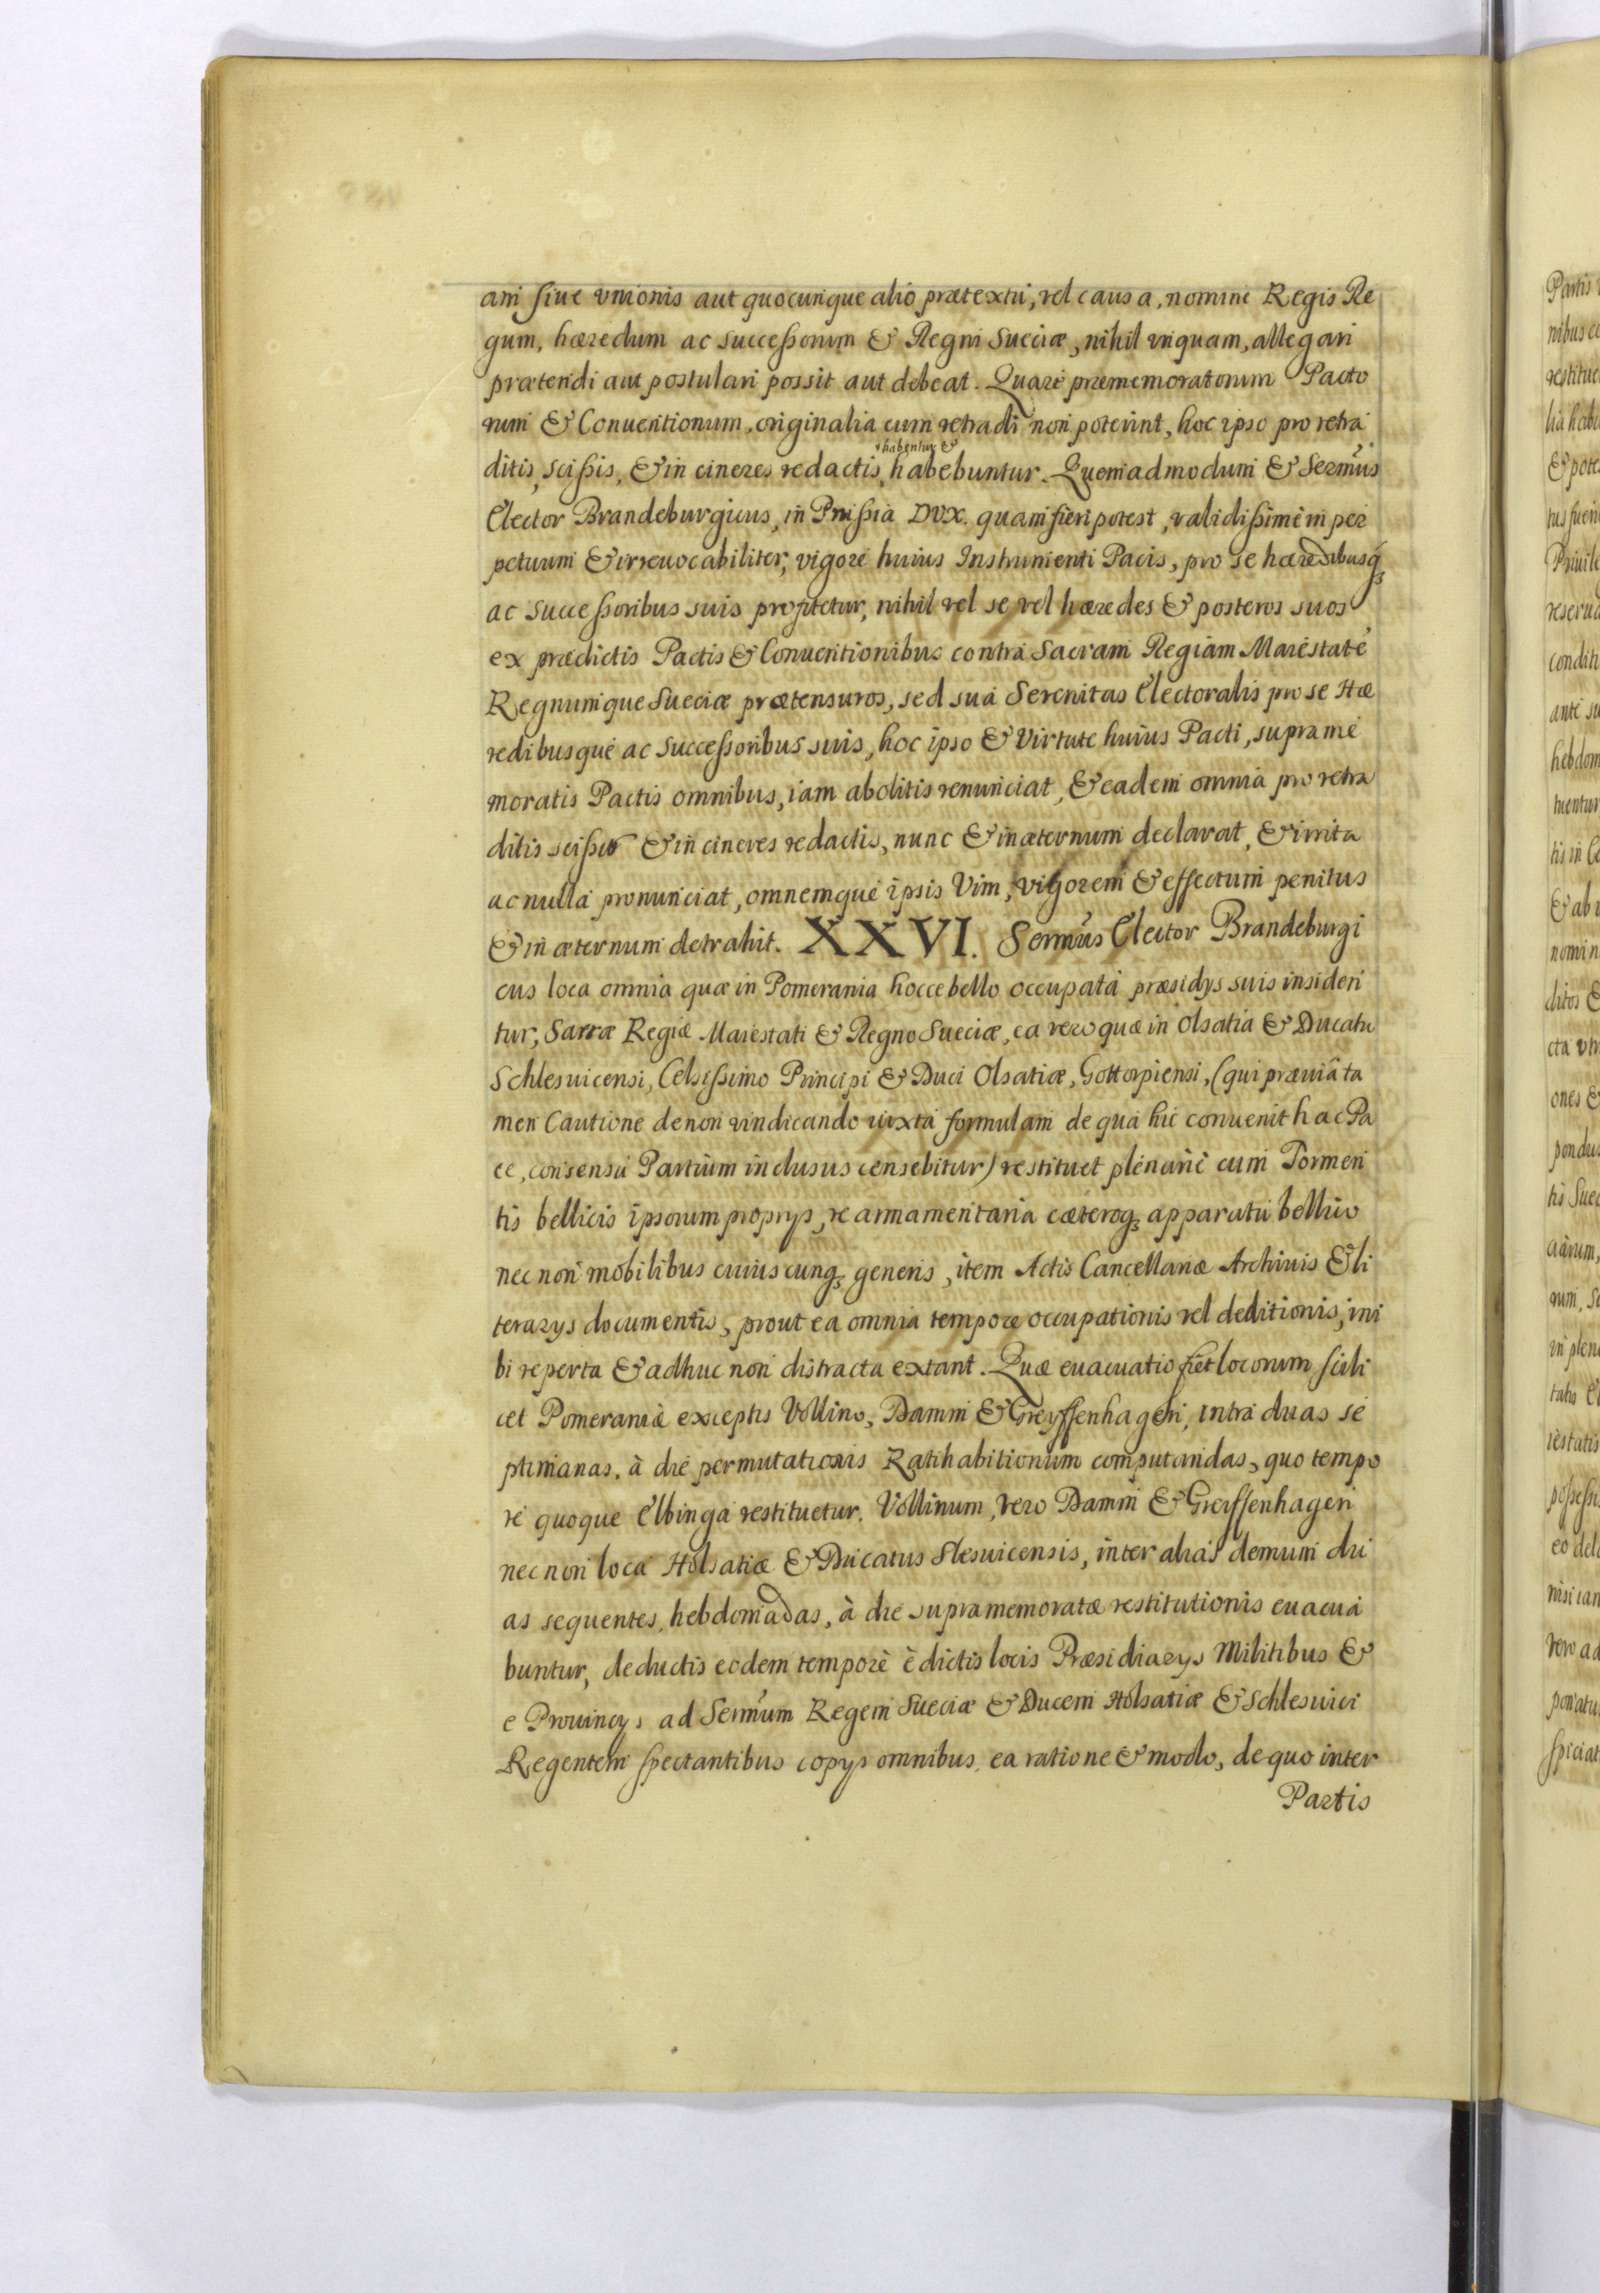 ani siue vnionis aut quocunque alio prætextu, vel causa, nomine Regis Re
gum, hæredum ac successorum & Regni Sueciæ, nihil vnquam, allegari
prætendi aut postulari possit aut debeat. Quare præmemoratorum Pacto
rum & Conuentionum, originalia cum retradi non poterint, hoc ipso pro retra
habentur &
ditis, scissis, & in cineres redactis, habebuntur. Quemadmodum & Sermus
Elector Brandeburgicus, in Prussia DVX. quam fieri potest, validissime in per
petuum & irreuocabiliter, vigore huius Instrumenti Pacis, pro se hæredibusq3
ac successoribus suis profitetur, nihil vel se vel hæredes & posteros suos
ex prædictis Pactis & Conuentionibus contra Sacram Regiam Maiestatē
Regnumque Sueciæ prætensuros, sed sua Serenitas Electoralis pro se Hæ
redibusque ac Successoribus suis, hoc ipso & Virtute huius Pacti, supra me
moratis Pactis omnibus, iam abolitis renunciat, & eadem omnia pro retra
ditis scissis & in cineres redactis, nunc & in æternum declarat, & irrita
ac nulla pronunciat, omnemque ipsis Vim, vigorem & effectum penitus
& in æternum detrahit. XXVI. Sermus Elector Brandeburgi
cus loca omnia quæ in Pomerania hocce bello occupata præsidys suis insiden
tur, Sacræ Regiæ Maiestati & Regno Sueciæ, ea vero quæ in Olsatia & Ducatu
Schlesuicensi, Celsissimo Principi & Duci Olsatiæ, Gottorpiensi, (qui præuiâ ta
men Cautione de non vindicando iuxta formulam de qua hic conuenit hac Pa
ce, consensu Partium inclusus censebitur) restituet plenariè cum Tormen
tis bellicis ipsorum proprys, re armamentaria cæteroq3 apparatu bellico
nec non mobilibus cuiuscunq3 generis, item Actis Cancellariæ Archiuis & li
terarys documentis, prout ea omnia tempore occupationis vel deditionis, ini
bi reperta & adhuc non distracta extant. Quæ euacuatio fiet locorum scili
cet Pomeraniæ exceptis Vollino, Damm & Greyffenhagen, intra duas se
ptimanas, à die permutationis Ratihabitionum computandas, quo tempo
re quoque Elbinga restituetur. Vollinum, vero Damm & Greiffenhagen
nec non loca Holsatiæ & Ducatus Slesuicensis, inter alias demum du
as sequentes, hebdomadas, à die supramemoratæ restitutionis euacua
buntur, deductis eodem tempore è dictis locis Præsidiarys Militibus &
e Prouincys ad Sermum Regem Sueciæ & Ducem Holsatiæ & Schlesuici
Regentem spectantibus copys omnibus, ea ratione & modo, de quo inter
Partis